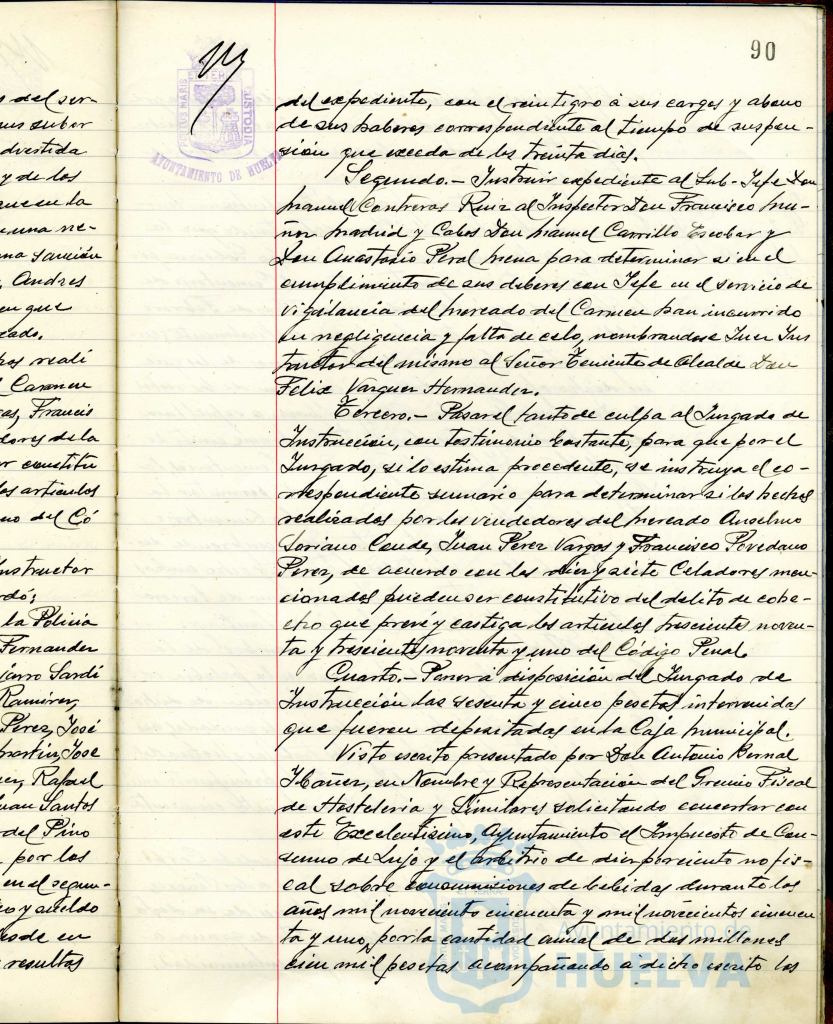 90
PORTUS MARIS ET TERRÆ CUSTODIA
AYUNTAMIENTO DE HUELVA
s del ser-
advertida
y de los
que en la
una ne-
una sanción
Andres
en que
cado.
reali
l Carmen
cas, Francis
dores de la
r constitu
los articulos
no del Có
nstructor
rdó:
la Policia
Fernandez
jarro Sardi
Ramirez,
Perez, José
Martin, Jose
ez, Rafael
Juan Santos
del Pino
por los
en el segun-
co y sueldo
esde en
resultas
del expediente, con el reintigro á sus cargos y abono
de sus haberes correspondiente al tiempo de suspen-
sión que exceda de los treinta dias.
Segundo.- Instruir expediente al Sub-Jefe Don
Manuel Contreras Ruiz al Inspector Don Francisco Mu-
ñoz Madrid y Cabos Don Manuel Carrillo Escobar y
Don Anastasio Peral Mena para determinar si en el
cumplimiento de sus deberes con Jefe en el servicio de
vigilancia del Mercado del Carmen han incurrido
en negligencia y falta de celo, nombrandose Juez Ins
tructor del mismo al Señor Teniente de Alcalde Don
Felix Vazquez Hernandez.
Tercero.- Pasar el tanto de culpa al Juzgado de
Instrucción, con testimonio bastante, para que por el
Juzgado, si lo estima procedente, se instruya el co-
rrespondiente sumario para determinar si los hechos
realizados por los vendedores del Mercado Anselmo
Soriano Conde, Juan Perez Vargas y Francisco Povedano
Perez, de acuerdo con los diez y siete Celadores men-
cionados pueden ser constitutivo del delito de cohe-
cho que prevé y castiga los articulos trescientos noven-
ta y trescientos noventa y uno del Código Penal.
Cuarto.- Poner á disposición del Juzgado de
Instrucción las sesenta y cinco pesetas intervenidas
que fueron depositadas en la Caja Municipal.
Visto escrito presentado por Don Antonio Bernal
Ibañez, en Nombre y Representación del Gremio Fiscal
de Hosteleria y Similares solicitando concertar con
este Excelentisimo, Ayuntamiento el Impuesto de Con-
sumo de Lujo y el arbitrio de diez por ciento no fis-
cal sobre consumiciones de bebidas durante los
años mil noveciento cincuenta y mil novecientos cincuen
ta y uno, por la cantidad anual de dos millones
cien mil pesetas acompañando a dicho escrito los
Ayuntamiento de
HUELVA